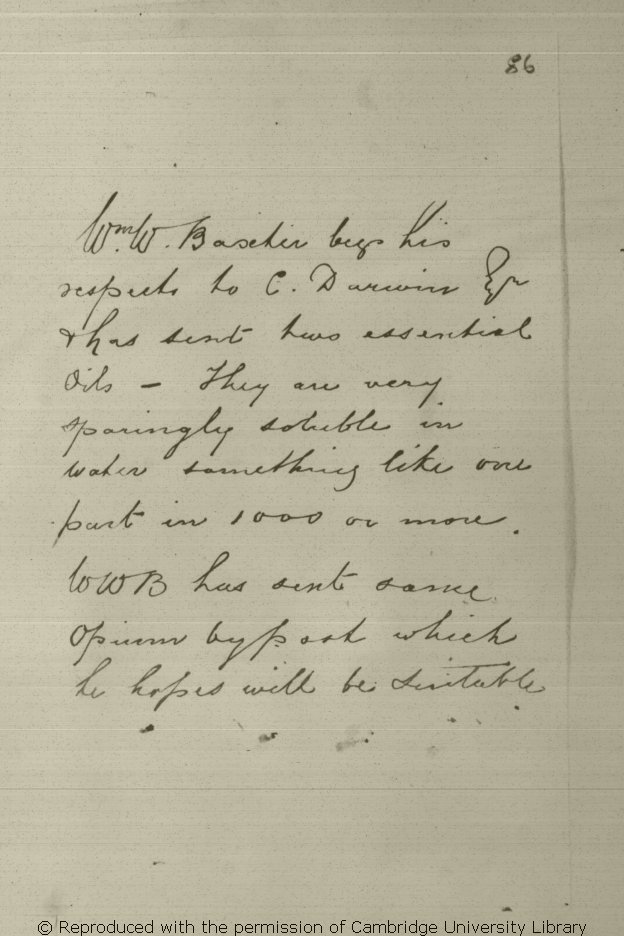 86
Wm. W. Baxter begs his
respects to C. Darwin Esqr
& has sent two essential
Oils — They are very
sparingly soluble in
water something like one
part in 1000 or more.
WWB has sent some
Opium by post which
he hopes will be suitable
© Reproduced with the permission of Cambridge University Library